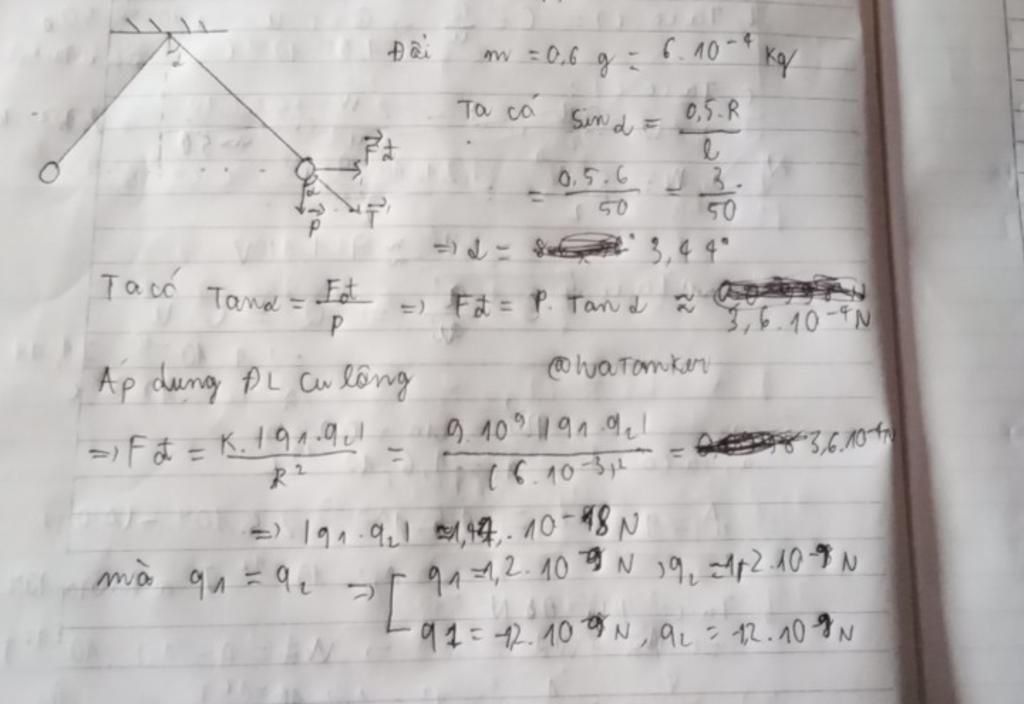 α
Đổi m = 0,6 g = 6.10⁻⁴ kg
Ta có sin α = 0,5.R / l
= 0,5.6 / 50 = 3 / 50
=> α = 3,44°
F⃗đ
α
P⃗ T⃗
Ta có Tan α = Fđ / P => Fđ = P. Tan α ≈ 3,6.10⁻⁴ N
Áp dụng ĐL Cu lông @WaTomker
=> Fđ = K.|q1.q2| / R² = 9.10⁹ |q1.q2| / (6.10⁻³)² = 3,6.10⁻⁴N
=> |q1.q2| ≈ 1,44.10⁻¹⁸ N
mà q1 = q2 => [ q1 = 1,2.10⁻⁹ N, q2 = 1,2.10⁻⁹ N
q1 = -12.10⁻⁹ N, q2 = -12.10⁻⁹ N